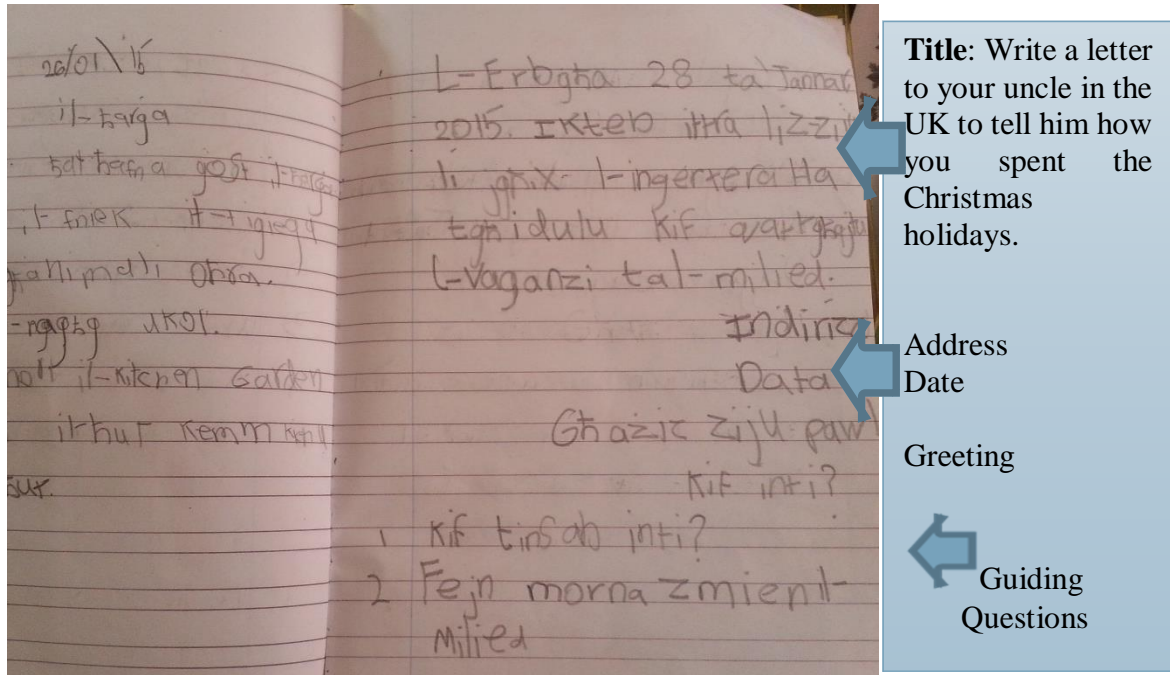 26/01\15
il-ħarġa
ħarġa
il-fniek it-tiġieġ
oħra.
ukoll.
il-kitchen Garden
kemm
L-Erbgħa 28 ta' Jannar
2015. Ikteb ittra lizzij
li jgħix l-ingerterra Ha
tgħidulu kif qattgħajtu
l-vaganzi tal-milied.
Indirizz
Data
Għażiż Ziju pawl
Kif inti?
1 Kif tinsab inti?
2 Fejn morna zmien il-
Milied
Title: Write a letter
to your uncle in the
UK to tell him how
you spent the
Christmas
holidays.
Address
Date
Greeting
Guiding
Questions